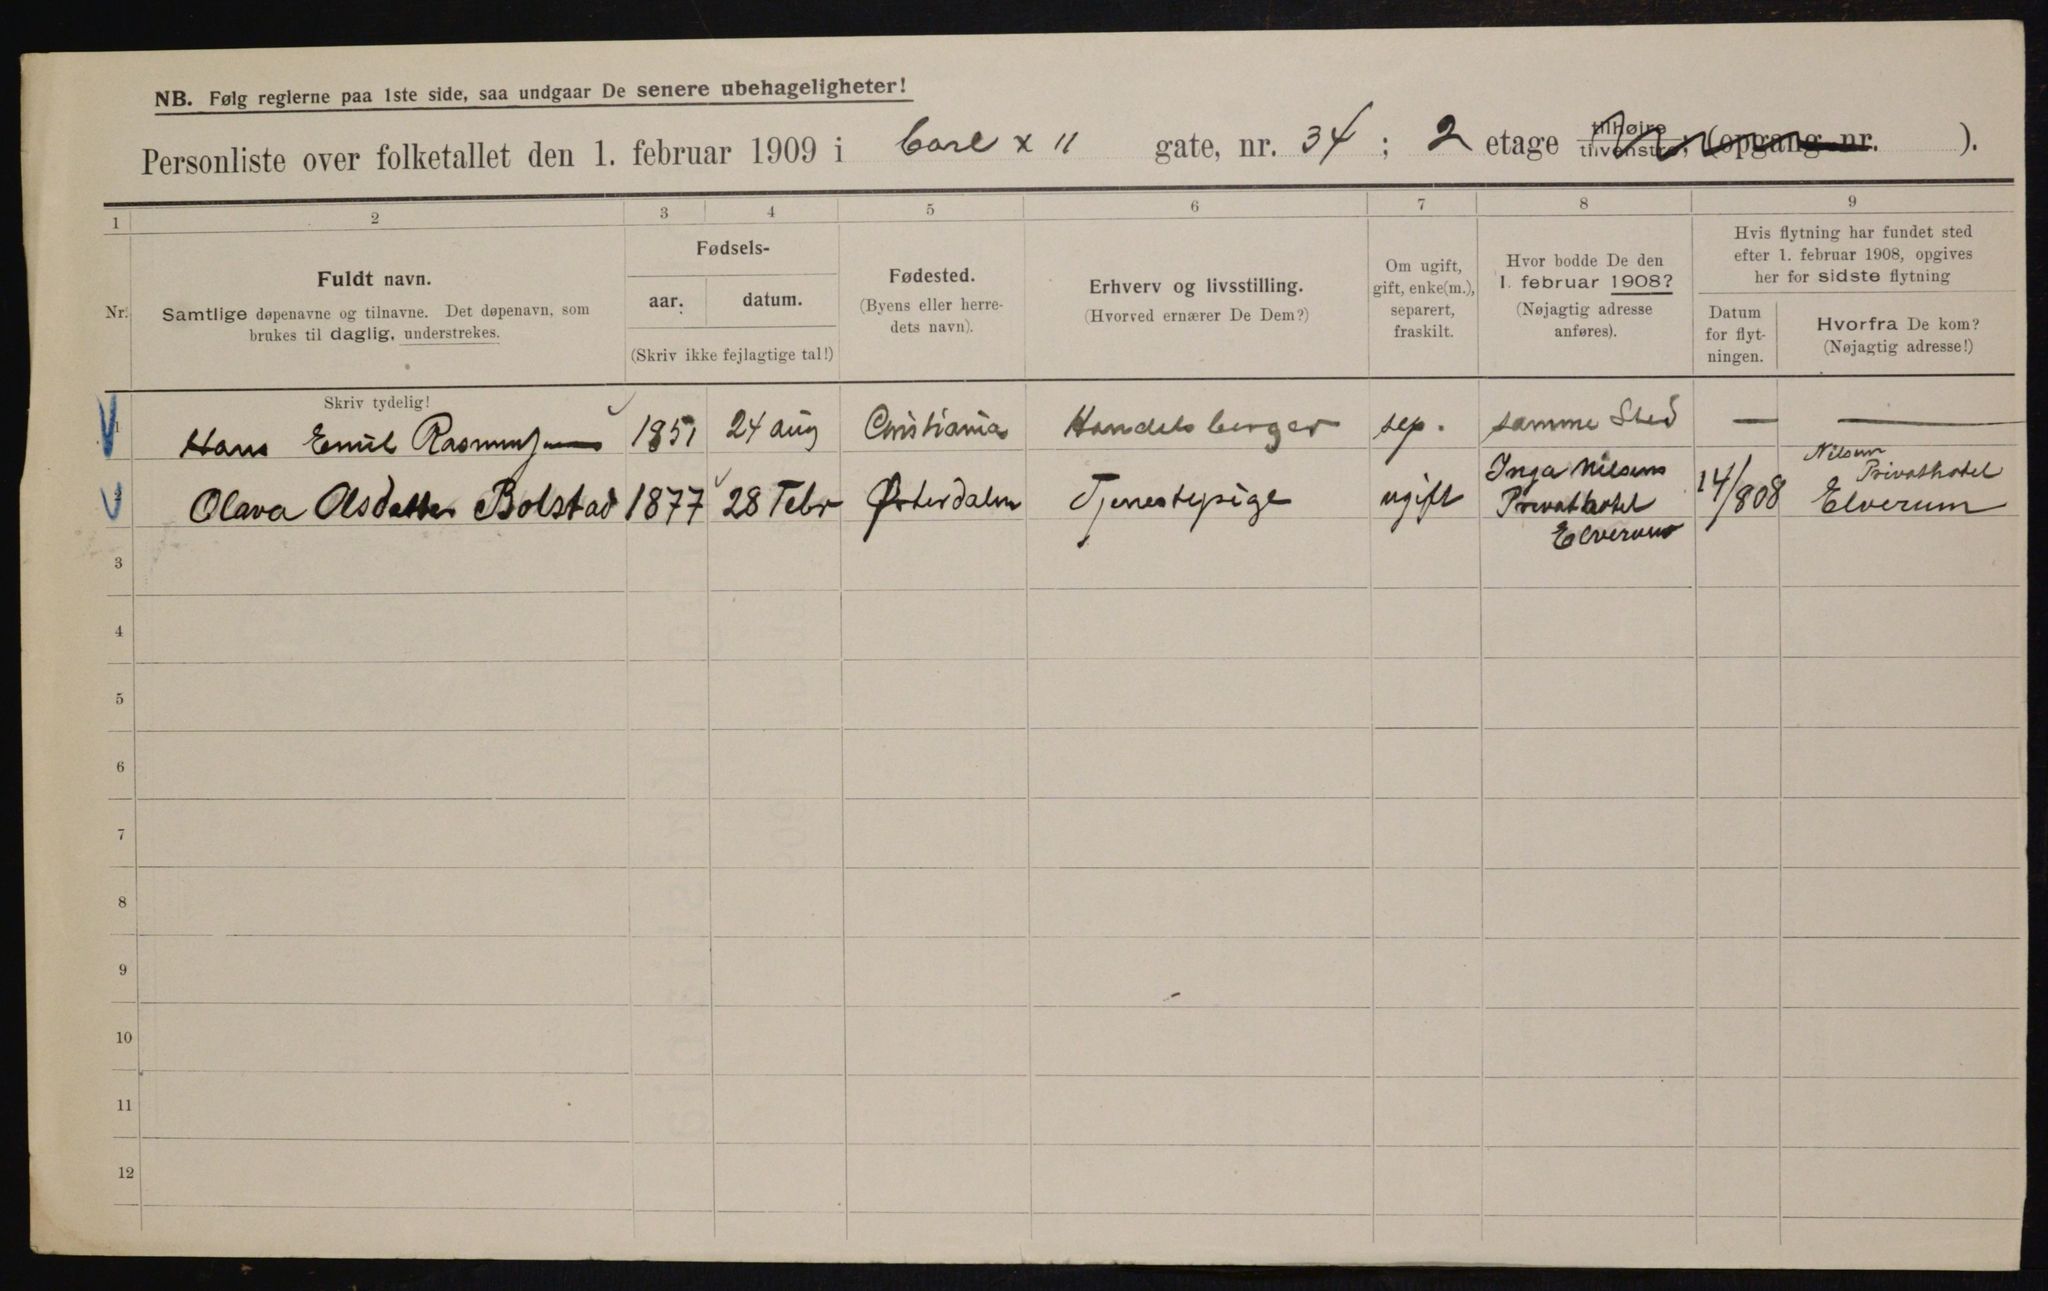 NB. Følg reglerne paa 1ste side, saa undgaar De senere ubehageligheter!
Personliste over folketallet den 1. februar 1909 i Carl x 11 gate, nr. 34 ; 2 etage tilhøire tilvenstre, (opgang nr. ).
1 2 3 4 5 6 7 8 9
Nr.
Fuldt navn.
Samtlige døpenavne og tilnavne. Det døpenavn, som
brukes til daglig, understrekes.
Fødsels-
aar. datum.
(Skriv ikke fejlagtige tal!)
Fødested.
(Byens eller herre-
dets navn).
Erhverv og livsstilling.
(Hvorved ernærer De Dem?)
Om ugift,
gift, enke(m.),
separert,
fraskilt.
Hvor bodde De den
1. februar 1908?
(Nøjagtig adresse
anføres).
Hvis flytning har fundet sted
efter 1. februar 1908, opgives
her for sidste flytning
Datum
for flyt-
ningen.
Hvorfra De kom?
(Nøjagtig adresse!)
Skriv tydelig!
1 Hans Emil Rasmussen 1851 24 aug Cristiania Handelsborger sep. samme Sted — —
2 Olava Olsdatter Bolstad 1877 28 Febr Østerdalen Tjenestepige ugift Inga Nilsens
Privathotel
Elverum
14/808
Nilsens
Privathotel
Elverum
3
4
5
6
7
8
9
10
11
12